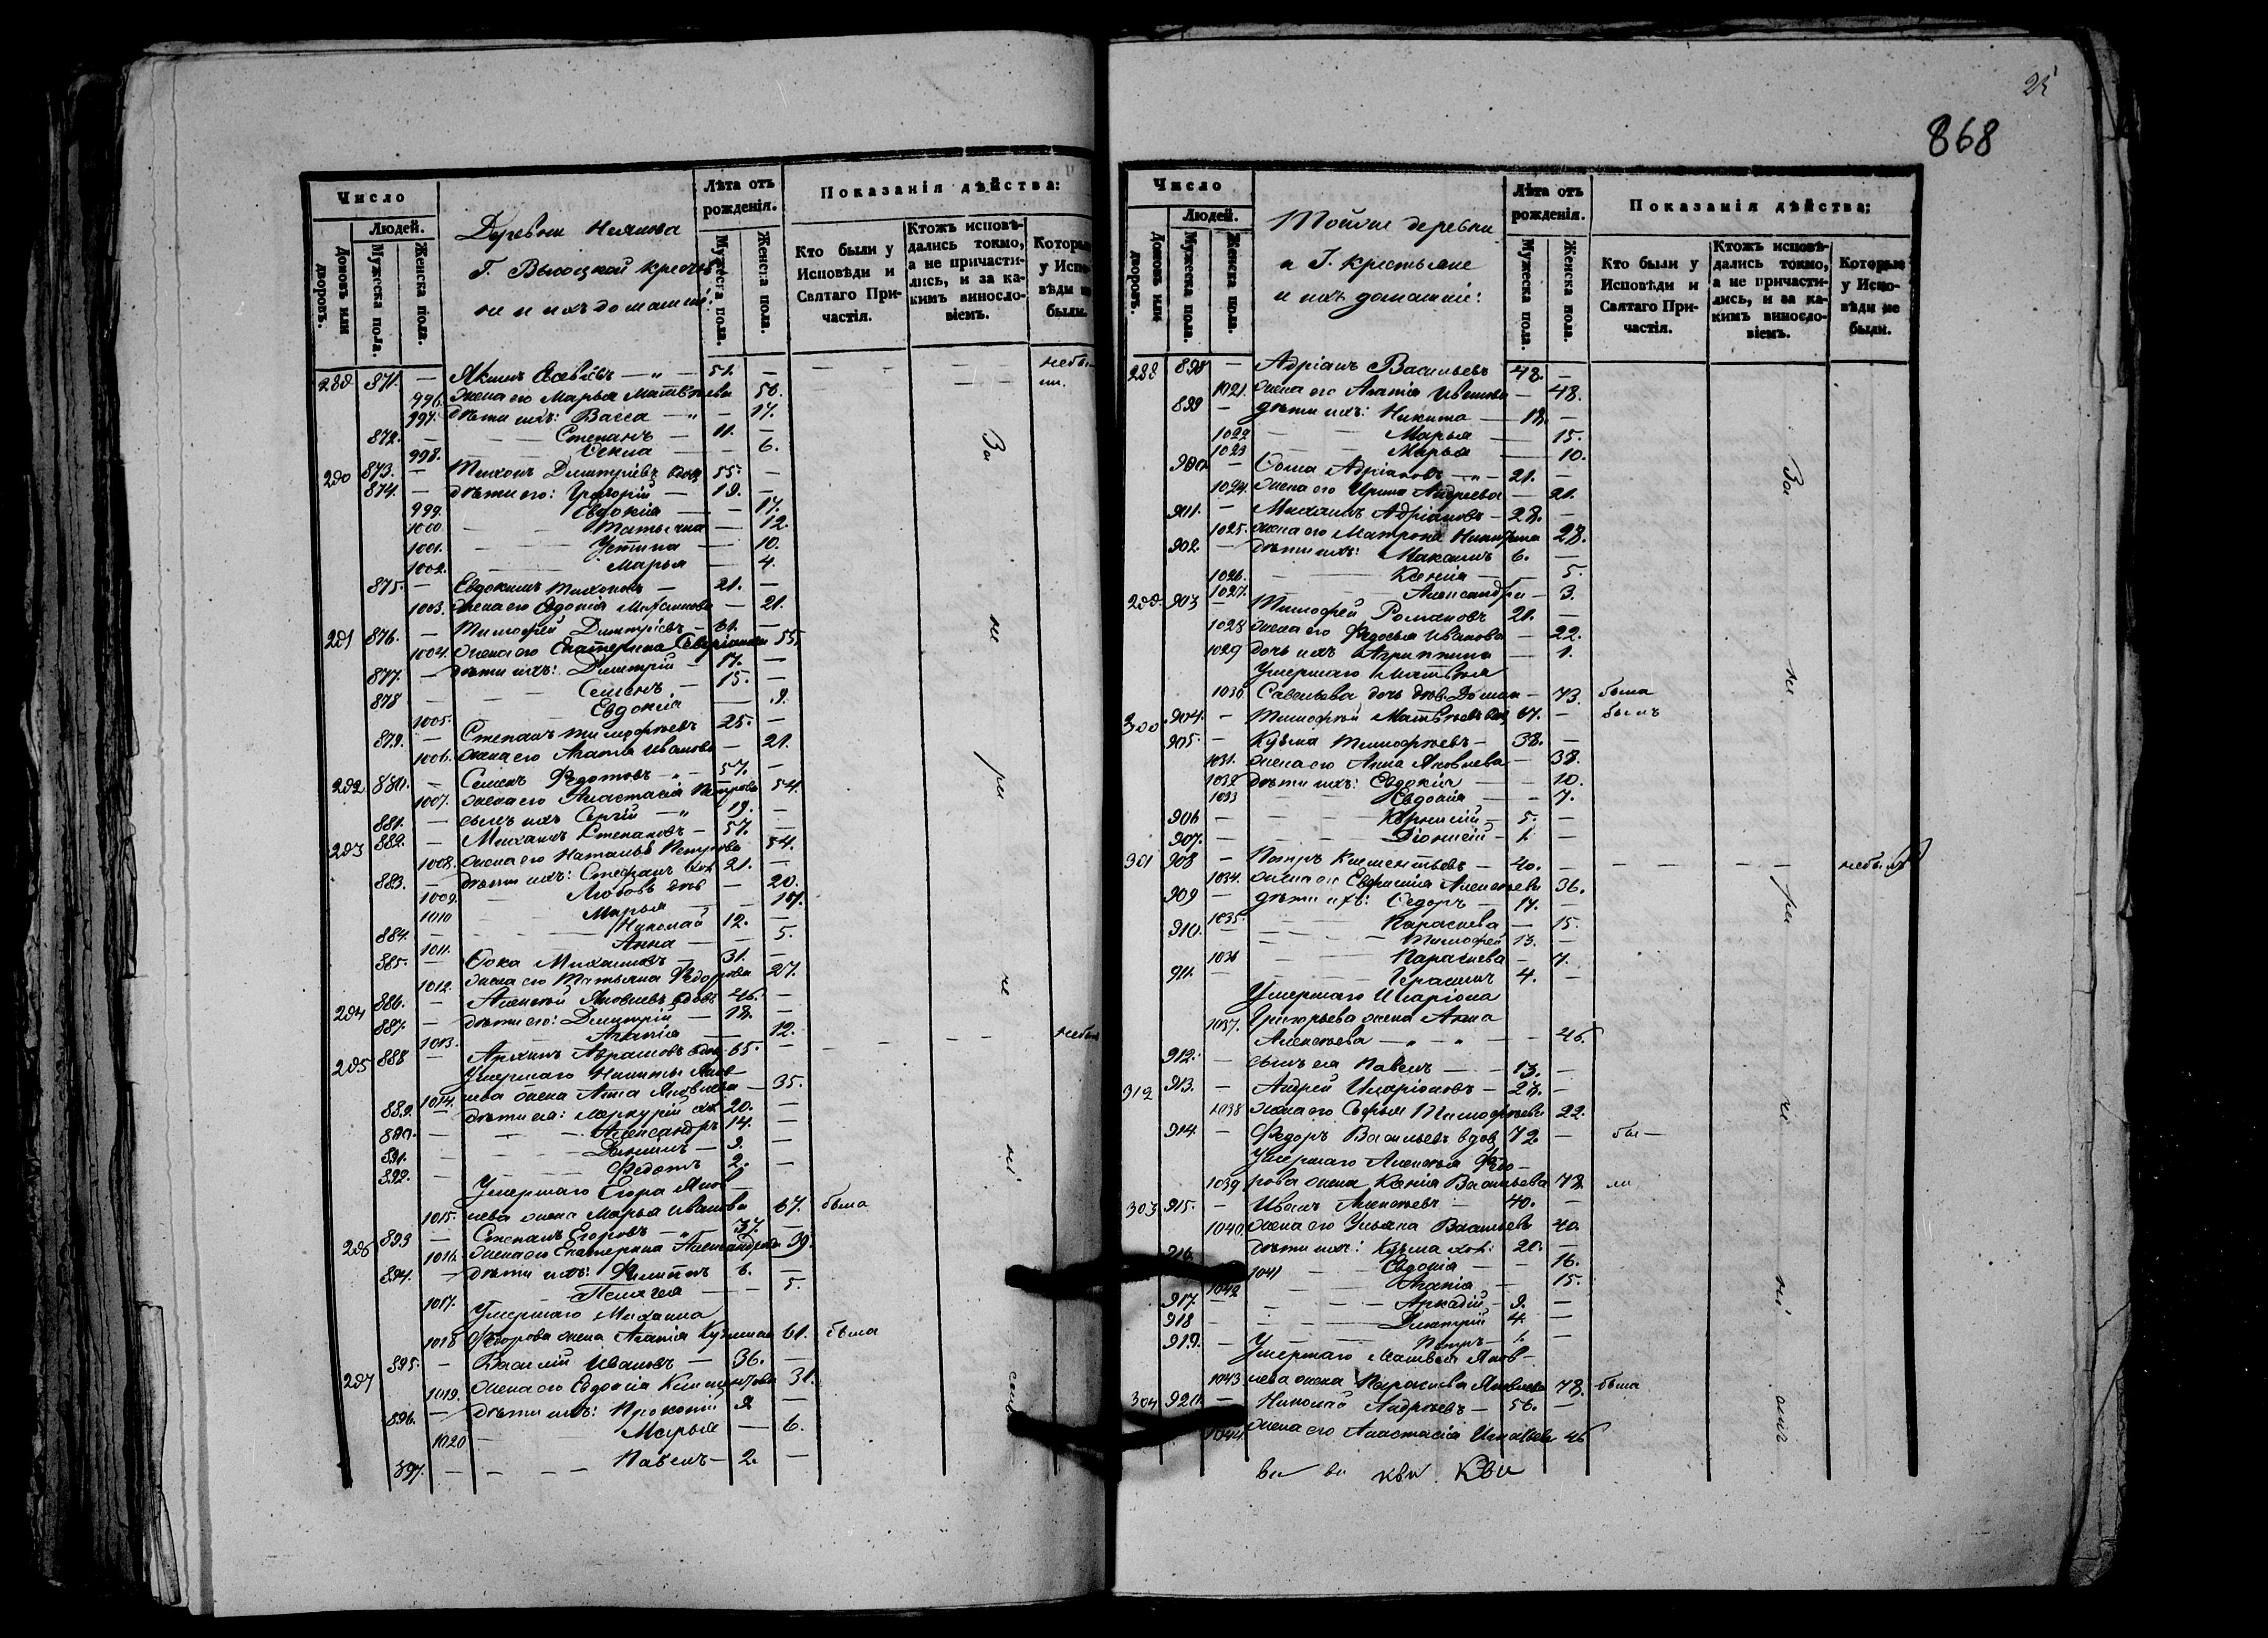 Число
Людей.
Домовъ или дворовъ.
Мужеска пола.
Женска пола.
Деревни
Г. Высоцкой крестья
не и ихъ домашнiе:
Лѣта отъ рожденiя.
Мужеска пола.
Женска пола.
Показанiя дѣйства:
Кто были у Исповѣди и Святаго Причастiя.
Ктожъ исповѣдались токмо, а не причастились, и за какимъ винословiемъ.
Которые у Исповѣди не были.
871. — 51. —
996. Жена его Марья Матвѣева — 50.
997. дѣти ихъ: Васса — 17.
872. — Степанъ — 11. —
998. — Фекла — 6.
290 873. — Тихонъ Димитрiевъ вдов 55. —
874. — дѣти его: Григорiй — 19. —
999. Евдокiя — 17.
1000 — Татьяна — 12.
1001. — Устина — 10.
1002. — Марья — 4.
875. — Евдокимъ Тихоновъ — 21. —
1003. Жена его Евдокiя — 21.
291 876. — Тимофей Димитрiевъ — 51. —
1004. Жена его Екатерина 55.
877. — дѣти ихъ: Димитрiй — 17. —
878 — Семенъ — 15. —
1005. Евдокiя — 9.
879. — Степанъ Тимофѣевъ 25. —
1006. Жена его Агапiя Иванова — 21.
292 880. — Семенъ Федотовъ — 57. —
1007. Жена его Анастасiя Петрова 54.
881. — сынъ ихъ Сергiй — 19. —
293 882. — Михаилъ Степановъ — 57. —
1008. Жена его Наталья Петрова 54.
883. — дѣти ихъ: Стефанъ хол 21. —
1009. Любовь — 20.
1010 Марья — 17.
884. — Николай 12. —
1011. Анна — 5.
885. — Фока Михаиловъ — 31. —
1012. Жена его Татьяна Федорова 27.
294 886. — Алексѣй Яковлевъ вдовъ 46. —
887. — дѣти его: Димитрiй — 18. —
1013. Агапiя — 12.
295 888 — Архипъ Абрамовъ вдов 65. —
Умершаго Никиты Яков-
1014. лева жена Анна Яковлева — 35.
889. — дѣти ея: Меркурiй хол 20. —
890. — Александръ 14. —
891. — Данiилъ — 9. —
892. — Федотъ 2. —
Умершаго Егора Яков-
1015. лева жена Марья Иванова 67. была
296 893 — Степанъ Егоровъ — 37 —
1016. Жена его Екатерина Александрова 39.
894. — дѣти ихъ: Филиппъ 6. —
1017. Пелагея — 5.
Умершаго Михаила
1018 Федорова жена Агапiя Кузмина 61. была
297 895. — Василiй Ивановъ — 36. —
1019. Жена его Евдокiя Климентова 31.
896. — дѣти ихъ: Прокопiй 9. —
1020 Марья — 6.
897. — Павелъ — 2. —
За не ра че нi емъ
25
868
Число
Людей.
Домовъ или дворовъ.
Мужеска пола.
Женска пола.
Тойже деревни
и Г. крестьяне
и ихъ домашнiе:
Лѣта отъ рожденiя.
Мужеска пола.
Женска пола.
Показанiя дѣйства:
Кто были у Исповѣди и Святаго Причастiя.
Ктожъ исповѣдались токмо, а не причастились, и за какимъ винословiемъ.
Которые у Исповѣди не были.
298 898 — Адрiанъ Васильевъ 48. —
1021. Жена его Агапiя Иванова — 48.
899 — дѣти ихъ: Никита — 18. —
1022 Марья — 15.
1023 Марья — 10.
900 — Фома Адрiановъ — 21. —
1024. Жена его Ирина Андреева — 21.
901. — Михаилъ Адрiановъ — 28. —
1025. Жена его Матрона 28.
902. — дѣти ихъ: Максимъ 6. —
1026. Ксенiя — 5.
1027. Александра — 3.
299. 903 — Тимофей Романовъ 21. —
1028 Жена его Федосья Иванова — 22.
1029 дочь ихъ Агриппина — 1.
Умершаго Матвѣя
1030 Савельева дочь — 73. была
300 904. — Тимофѣй Матвѣевъ вдов 67. — былъ
905. — Кузма Тимофѣевъ — 38. —
1031. Жена его Анна Яковлева — 38.
1032 дѣти ихъ: Евдокiя — 10.
1033 Евдокiя — 7.
906 — 5. —
907. — Дiонисiй — 1. —
301 908 — Петръ Климентьевъ — 40. —
1034. Жена его Евфимiя Алексѣева 36.
909 — дѣти ихъ: Федоръ — 17. —
1035. Параскева — 15.
910. — Тимофей 13. —
1036 Параскева — 7.
911. — Герасимъ 4. —
Умершаго Иларiона
1037. Григорьева жена Анна
Алексѣева — 46.
912. — сынъ ея Павелъ — 13. —
312 913. — Андрей Иларiоновъ — 27. —
1038 Жена его Софья Тимофѣева 22.
914 — Федоръ Васильевъ вдов 72. — бы —
Умершаго Алексѣя Федо-
1039 рова жена Ксенiя Васильева 78. ли
303 915. — Иванъ Алексѣевъ — 40. —
1040. Жена его Ульяна Васильева 40.
916. дѣти ихъ: Кузма хол: 20. —
1041 Евдокiя — 16.
1042 Агапiя — 15.
917. — Аркадiй — 9. —
918 — Димитрiй 4. —
919. — Петръ — 1. —
Умершаго Матвея Яков-
1043 лева жена Параскева Яковлева 78. была
304 920. — Николай Андреевъ — 56. —
1044. Жена его Анастасiя 46
За не ра че нi емъ